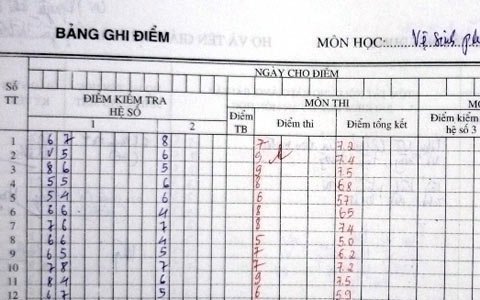 BẢNG GHI ĐIỂM MÔN HỌC: Vệ sinh
NGÀY CHO ĐIỂM
Số TT ĐIỂM KIỂM TRA HỆ SỐ MÔN THI
1 2 Điểm TB Điểm thi Điểm tổng kết Điểm kiểm hệ số 3
1 6 7 8 7 7.2
2 V 5 6 9 7.4
3 8 6 5 9 7.5
4 5 5 6 8 6.8
5 5 4 6 6 5.7
6 6 6 4 8 6.5
7 7 6 7 8 7.4
8 6 6 4 5 5.0
9 6 5 5 7 6.2
10 7 8 7 7 7.2
11 8 4 6 9 7.5
12 6 7 5 6 5.9